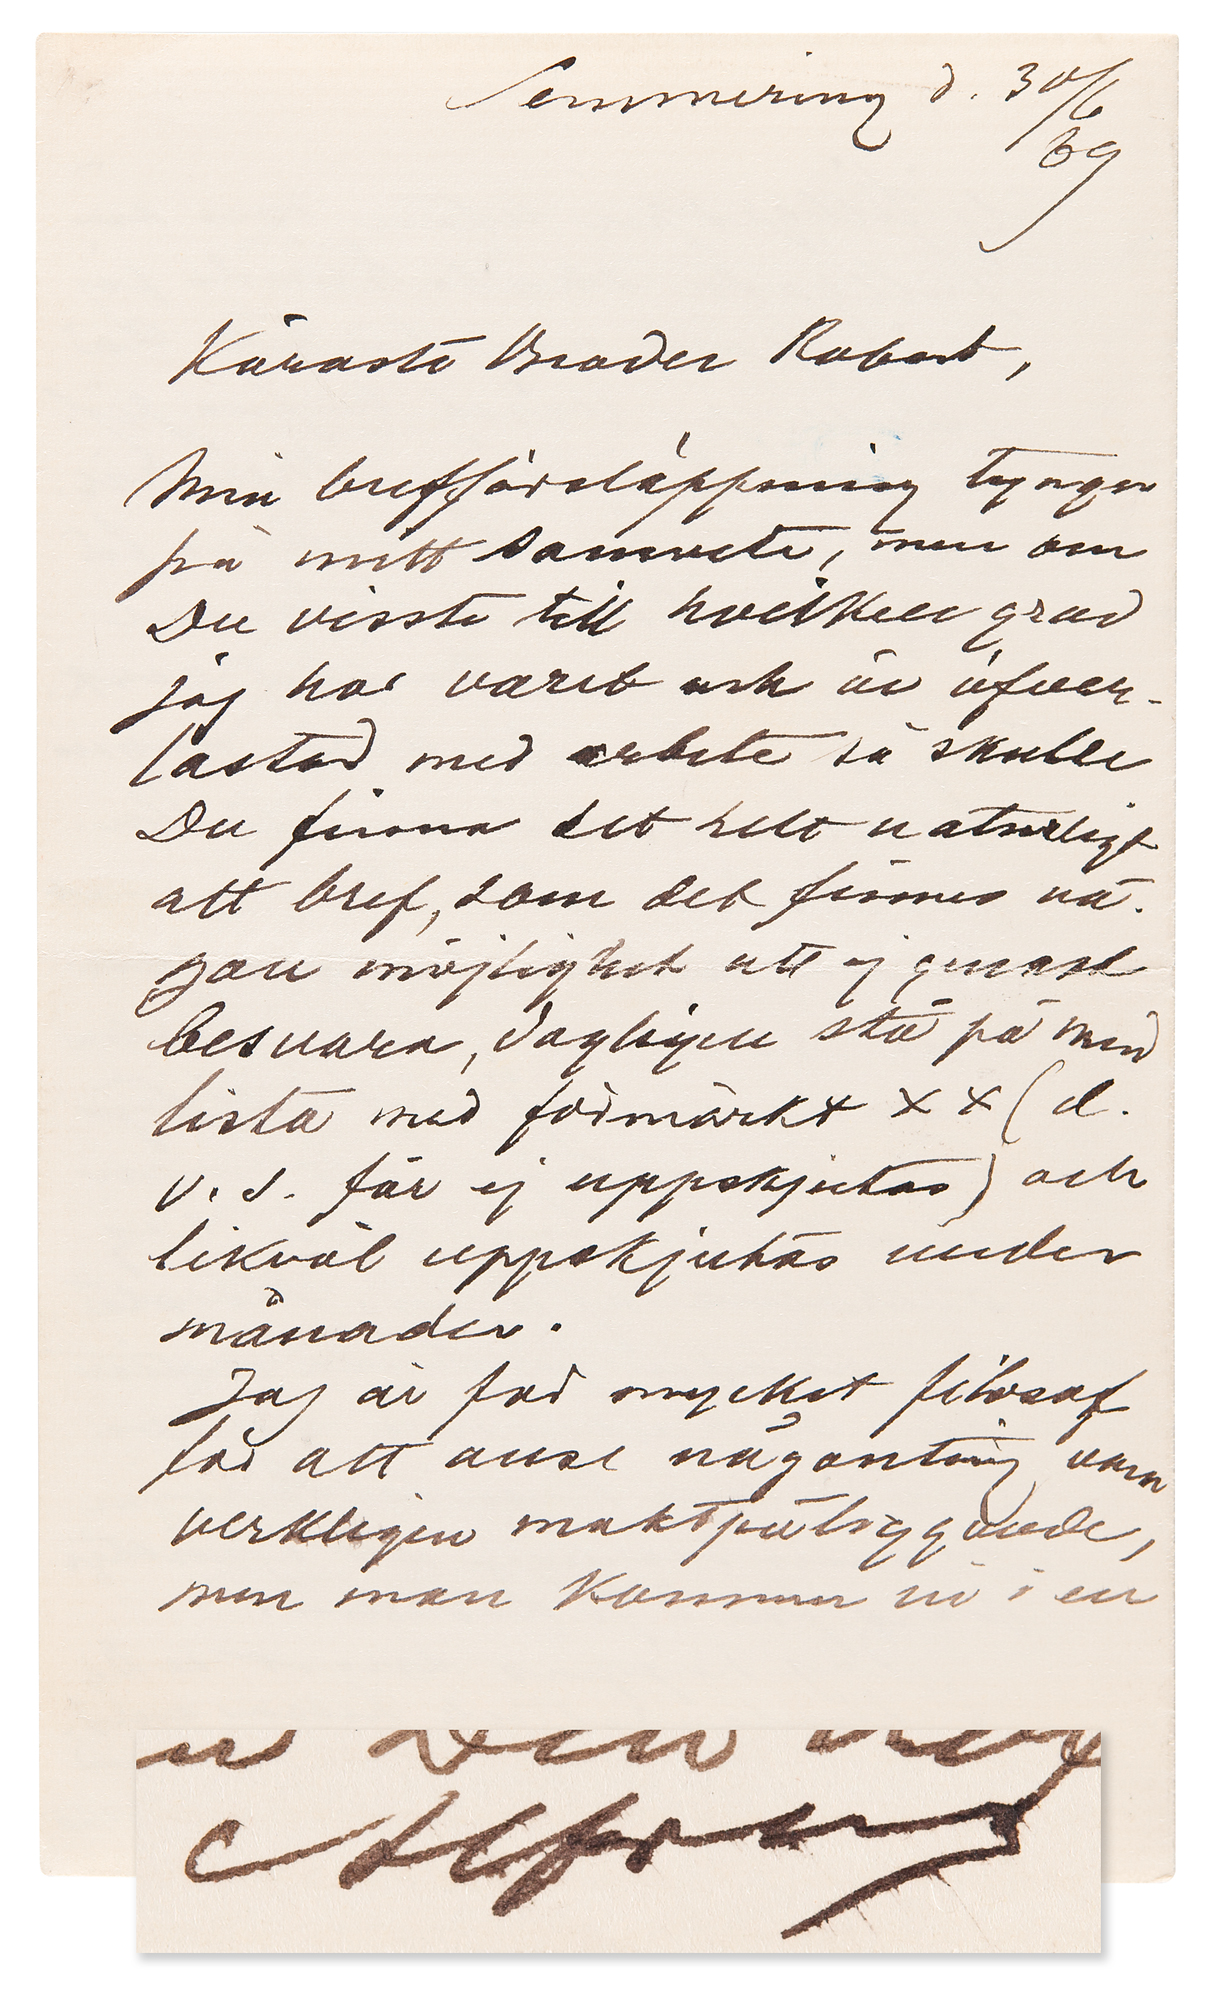 Semmering d. 30/6
89
Käraste Broder Robert,
Min brefförsläppning tynger
på mitt samvete, men om
Du visste till hvilken grad
jag har varit och är öfver-
lastad med arbete så skulle
Du finna det helt naturligt
att bref, som det finnes nå-
gon möjlighet att ej genast
besvara, dagligen stå på min
lista med förmärkt x x (d.
v. s. får ej uppskjutas) och
likväl uppskjutas under
månader.
Jag är för mycket filosof
för att anse någonting vara
verkligen maktpåliggande,
men man kommer in i en
Alfred